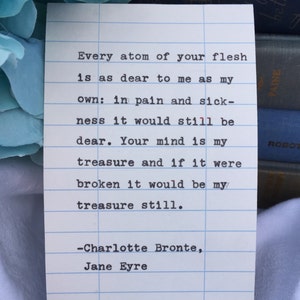 Every atom of your flesh
is as dear to me as my
own: in pain and sick-
ness it would still be
dear. Your mind is my
treasure and if it were
broken it would be my
treasure still.
-Charlotte Bronte,
Jane Eyre